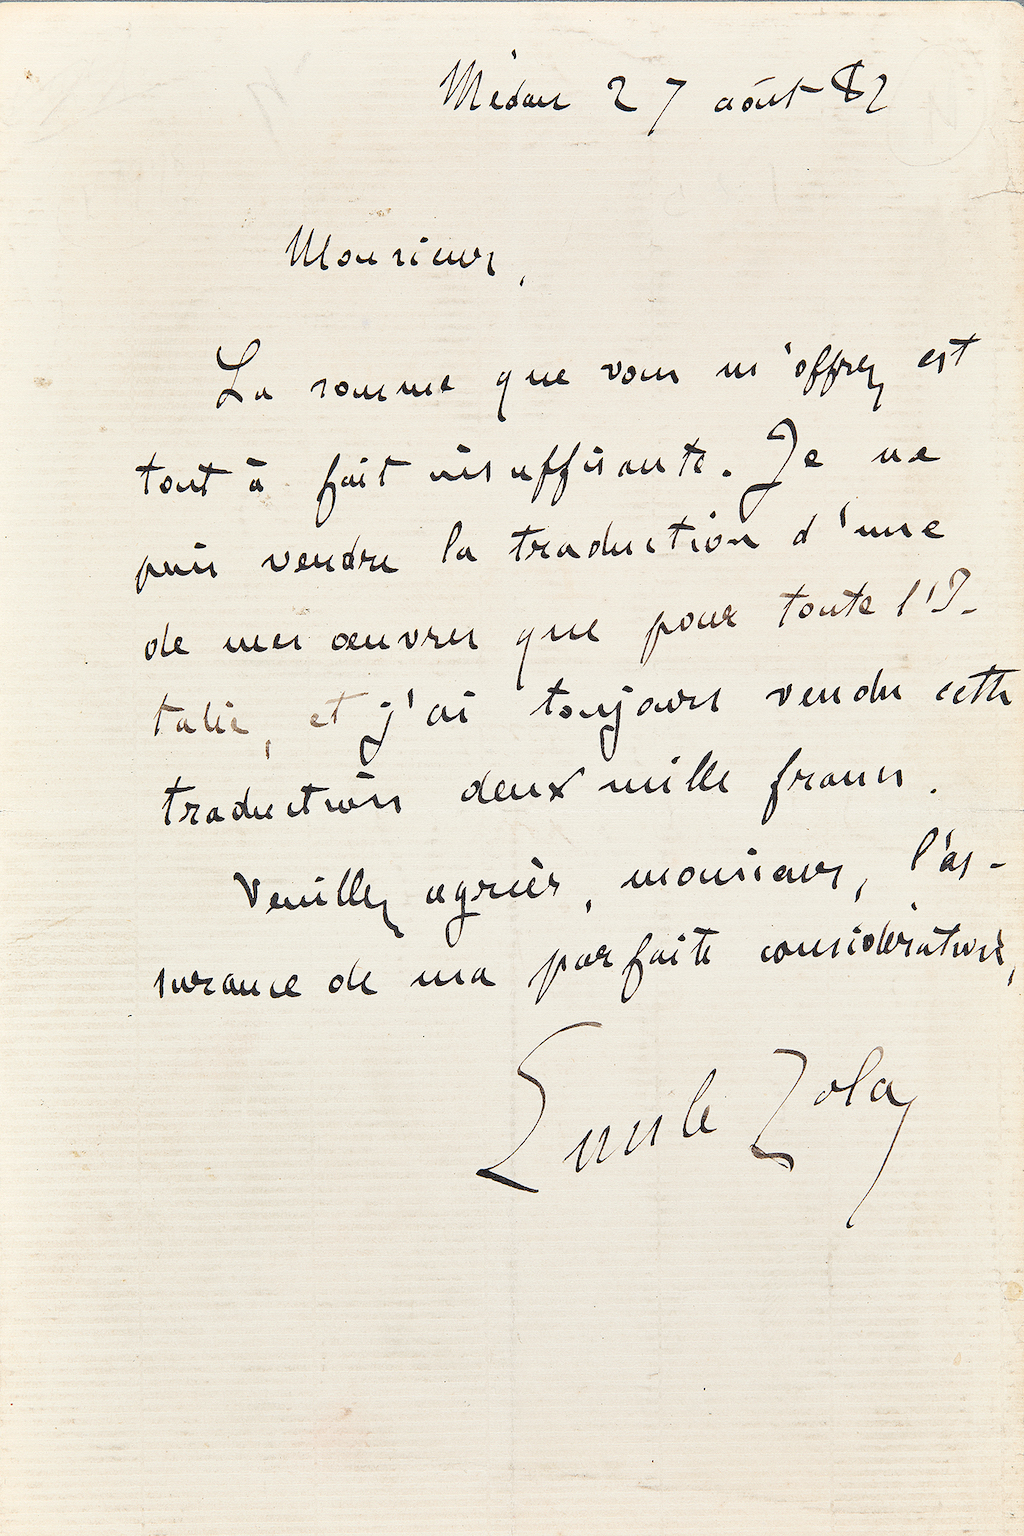 Médan 27 août 82
Monsieur,
La somme que vous m'offrez est
tout à fait insuffisante. Je ne
puis vendre la traduction d'une
de mes œuvres que pour toute l'I-
talie, et j'ai toujours vendu cette
traduction deux mille francs.
Veuillez agréer, monsieur, l'as-
surance de ma parfaite considération,
Emile Zola